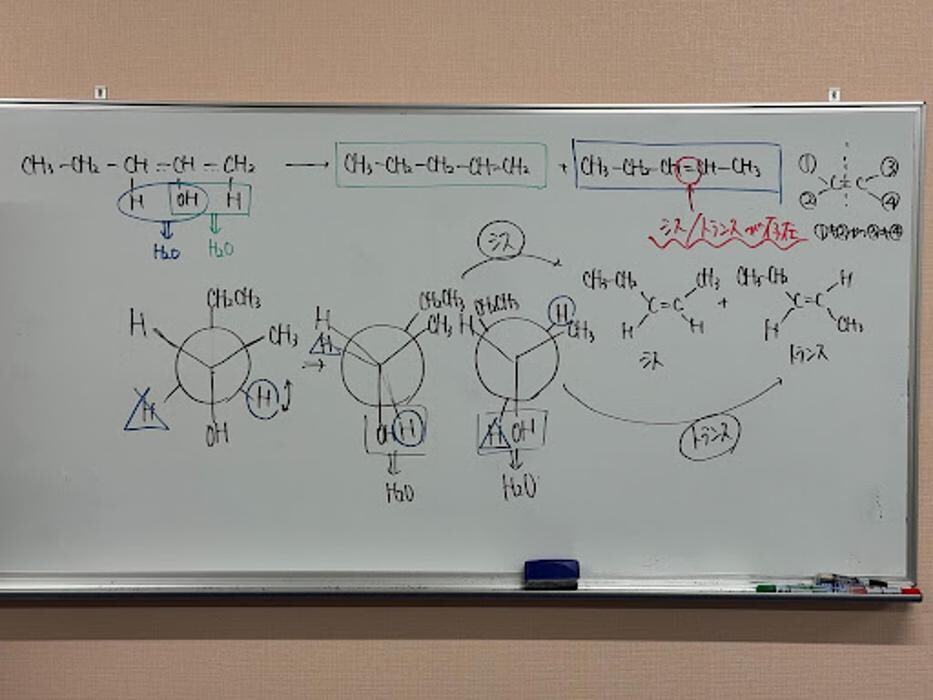 CH₃-CH₂-CH-CH-CH₂ → CH₃-CH₂-CH₂-CH=CH₂ + CH₃-CH₂-CH=CH-CH₃
H OH H
H₂O H₂O
① ② C=C ③ ④
シス/トランスが存在
シス
H CH₂CH₃ CH₃ H H OH
→
H H CH₂CH₃ CH₃ OH H
H₂O
H CH₂CH₃ H CH₃ H OH
H₂O
CH₃-CH₂ CH₃ C=C H H
シス
+
CH₃-CH₂ H C=C H CH₃
トランス
トランス